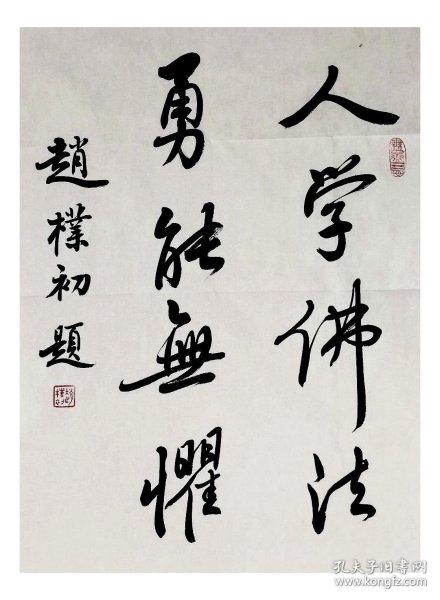 人学佛法
勇能無懼
趙樸初題
孔夫子旧书网
www.kongfz.com